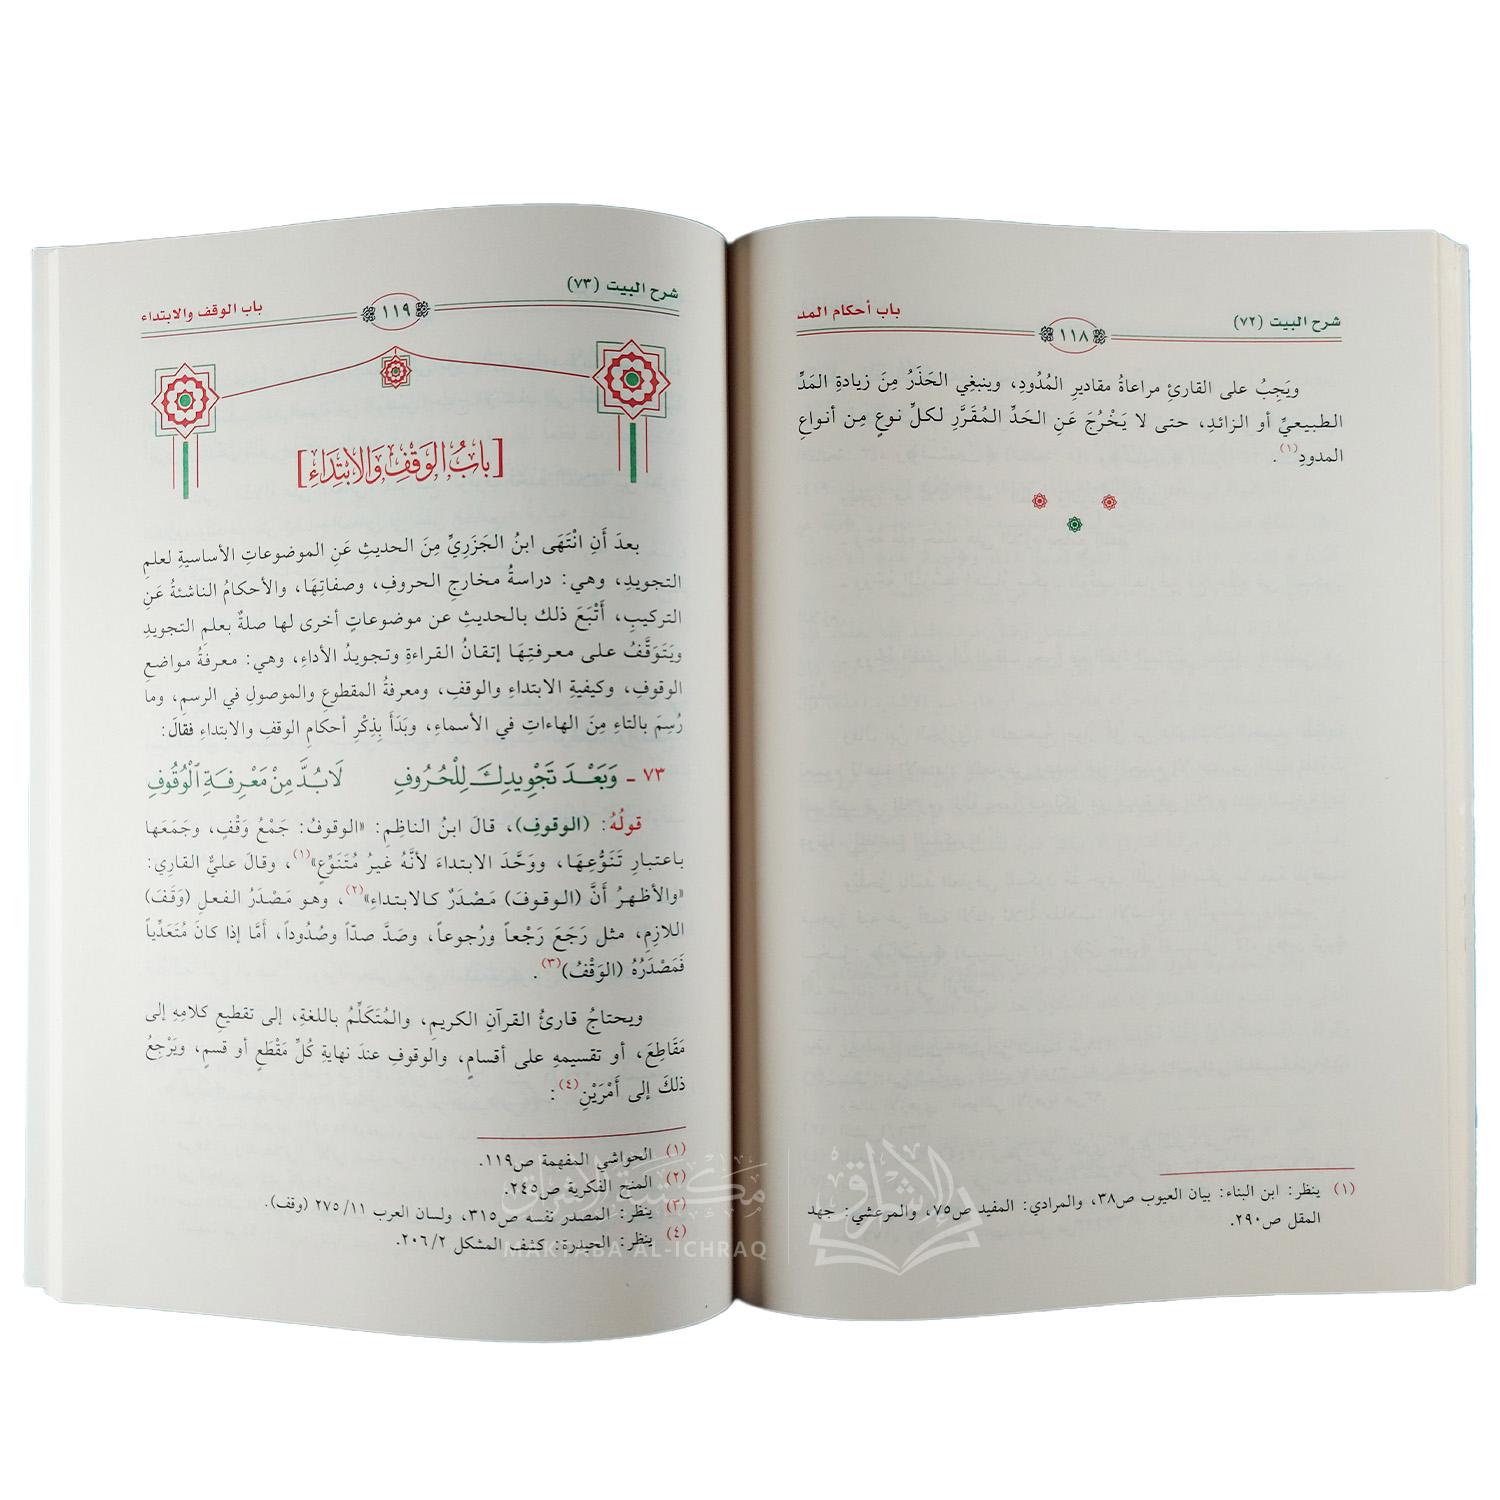 شرح البيت (٧٢)
١١٨
باب أحكام المد
ويَجِبُ على القارئِ مراعاةُ مقاديرِ المُدُودِ، وينبغِي الحَذَرُ مِنَ زيادةِ المَدِّ
الطبيعيِّ أو الزائدِ، حتى لا يَخْرُجَ عَنِ الحَدِّ المُقَرَّرِ لكلِّ نوعٍ مِن أنواعِ
المدودِ(١).
(١) ينظر: ابن البناء: بيان العيوب ص٣٨، والمرادي: المفيد ص٧٥، والمرعشي: جهد
المقل ص٢٩٠.
شرح البيت (٧٣)
١١٩
باب الوقف والابتداء
[بابُ الوَقْفِ وَالابْتِدَاءِ]
بعدَ أَنِ انْتَهَى ابنُ الجَزَرِيِّ مِنَ الحديثِ عَنِ الموضوعاتِ الأساسيةِ لعلمِ
التجويدِ، وهي: دراسةُ مخارجِ الحروفِ، وصفاتِهَا، والأحكامُ الناشئةُ عَنِ
التركيبِ، أَتْبَعَ ذلك بالحديثِ عن موضوعاتٍ أخرى لها صلةٌ بعلمِ التجويدِ
ويَتَوَقَّفُ على معرفتِهَا إتقانُ القراءةِ وتجويدُ الأداءِ، وهي: معرفةُ مواضعِ
الوقوفِ، وكيفيةِ الابتداءِ والوقفِ، ومعرفةُ المقطوعِ والموصولِ في الرسمِ، وما
رُسِمَ بالتاءِ مِنَ الهاءاتِ في الأسماءِ، وبَدَأَ بِذِكْرِ أحكامِ الوقفِ والابتداءِ فقالَ:
٧٣ - وَبَعْدَ تَجْوِيدِكَ لِلْحُرُوفِ لَابُدَّ مِنْ مَعْرِفَةِ الْوُقُوفِ
قولُهُ: (الوقوفِ)، قالَ ابنُ الناظِمِ: «الوقوفُ: جَمْعُ وَقْفٍ، وجَمَعَها
باعتبارِ تَنَوُّعِهَا، ووَحَّدَ الابتداءَ لأنَّهُ غيرُ مُتَنَوِّعٍ»(١)، وقالَ عليٌّ القاري:
«والأظهرُ أنَّ (الوقوفَ) مَصْدَرٌ كالابتداءِ»(٢)، وهو مَصْدَرُ الفعلِ (وَقَفَ)
اللازِمِ، مثل رَجَعَ رَجْعاً ورُجوعاً، وصَدَّ صدّاً وصُدُوداً، أمَّا إذا كانَ مُتَعَدِّياً
فَمَصْدَرُهُ (الوَقْفُ)(٣).
ويحتاجُ قارئُ القرآنِ الكريمِ، والمُتَكَلِّمُ باللغةِ، إلى تقطيعِ كلامِهِ إلى
مَقَاطِعَ، أو تقسيمِهِ على أقسامٍ، والوقوفِ عندَ نهايةِ كُلِّ مَقْطَعٍ أو قسمٍ، ويَرْجِعُ
ذلكَ إلى أَمْرَيْنِ(٤):
(١) الحواشي المفهمة ص١١٩.
(٢) المنح الفكرية ص٢٤٥.
(٣) ينظر: المصدر نفسه ص٣١٥، ولسان العرب ٢٧٥/١١ (وقف).
(٤) ينظر: الحيدرة: كشف المشكل ٢٠٦/٢.
مكتبة الإشراق
MAKTABA AL-ICHRAQ
الإشراق